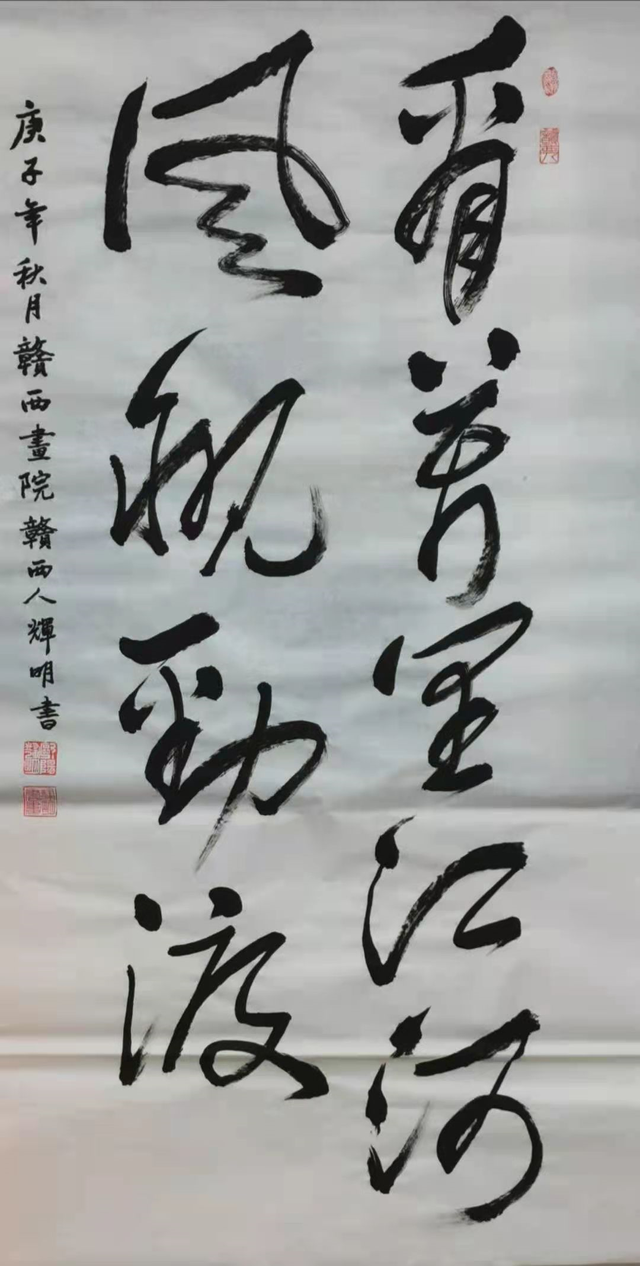 看万里江河
风帆劲渡
庚子年秋月贛西畫院贛西人輝明書